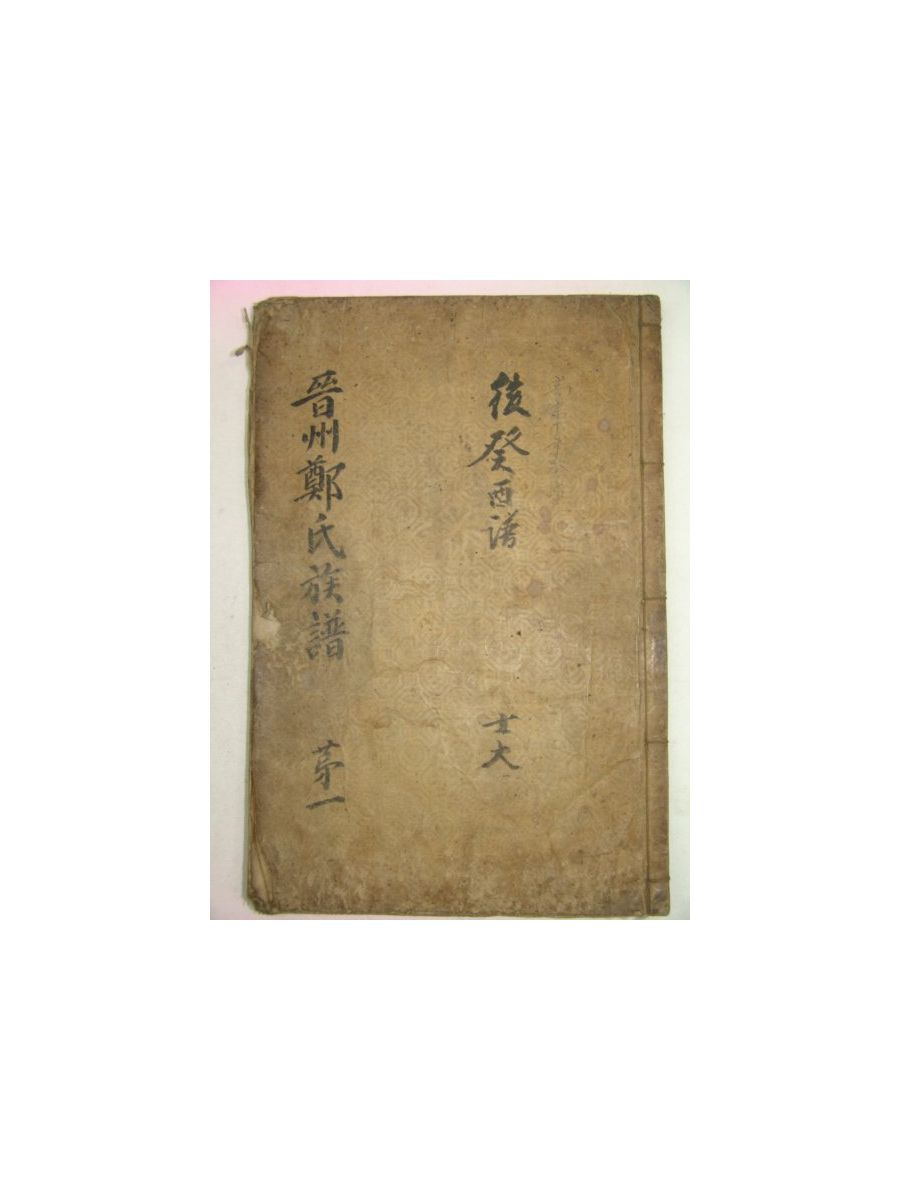 後癸酉譜
士大
晉州鄭氏族譜
苐一